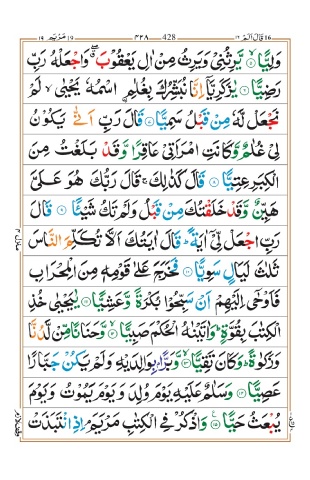 قال الم ١٦ 428 ٤٢٨ مريم ١٩
وَلِيًّا ۙ﴿۵﴾ يَّرِثُنِيْ وَيَرِثُ مِنْ اٰلِ يَعْقُوْبَ ۖ وَاجْعَلْهُ رَبِّ
رَضِيًّا ﴿۶﴾ يٰزَكَرِيَّاۤ اِنَّا نُبَشِّرُكَ بِغُلٰمِ ۨاسْمُهٗ يَحْيٰى ۙ لَمْ
نَجْعَلْ لَّهٗ مِنْ قَبْلُ سَمِيًّا ﴿۷﴾ قَالَ رَبِّ اَنّٰى يَكُوْنُ
لِيْ غُلٰمٌ وَّكَانَتِ امْرَاَتِيْ عَاقِرًا وَّقَدْ بَلَغْتُ مِنَ
الْكِبَرِ عِتِيًّا ﴿۸﴾ قَالَ كَذٰلِكَ ۚ قَالَ رَبُّكَ هُوَ عَلَيَّ
هَيِّنٌ وَّقَدْ خَلَقْتُكَ مِنْ قَبْلُ وَلَمْ تَكُ شَيْـًٔا ﴿۹﴾ قَالَ
رَبِّ اجْعَلْ لِّيْۤ اٰيَةً ؕ قَالَ اٰيَتُكَ اَلَّا تُكَلِّمَ النَّاسَ
ثَلٰثَ لَيَالٍ سَوِيًّا ﴿۱۰﴾ فَخَرَجَ عَلٰى قَوْمِهٖ مِنَ الْمِحْرَابِ
فَاَوْحٰۤى اِلَيْهِمْ اَنْ سَبِّحُوْا بُكْرَةً وَّعَشِيًّا ﴿۱۱﴾ يٰيَحْيٰى خُذِ
الْكِتٰبَ بِقُوَّةٍ ؕ وَاٰتَيْنٰهُ الْحُكْمَ صَبِيًّا ۙ﴿۱۲﴾ وَّحَنَانًا مِّنْ لَّدُنَّا
وَزَكٰوةً ؕ وَكَانَ تَقِيًّا ۙ﴿۱۳﴾ وَّبَرًّۢا بِوَالِدَيْهِ وَلَمْ يَكُنْ جَبَّارًا
عَصِيًّا ﴿۱۴﴾ وَسَلٰمٌ عَلَيْهِ يَوْمَ وُلِدَ وَيَوْمَ يَمُوْتُ وَيَوْمَ
يُبْعَثُ حَيًّا ﴿۱۵﴾ وَاذْكُرْ فِي الْكِتٰبِ مَرْيَمَ ۘ اِذِ انْتَبَذَتْ